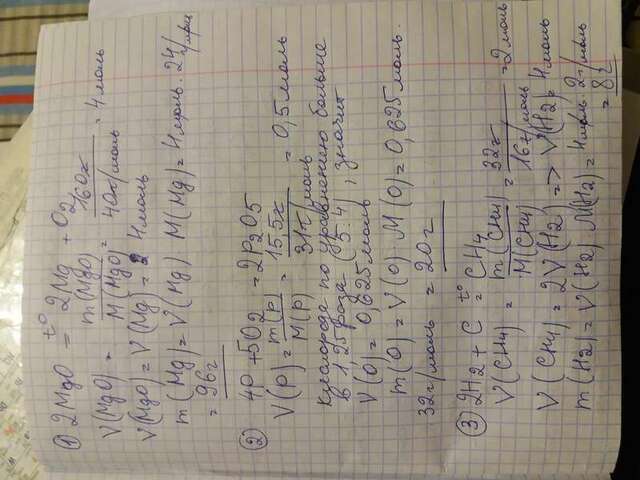 ① 2MgO t° = 2Mg + O2
V(MgO) = m(MgO) / M(MgO) = 160г / 40г/моль = 4 моль
V(MgO) = V(Mg) = 4 моль
m(Mg) = V(Mg) · M(Mg) = 4 моль · 24 г/моль
= 96г
② 4P + 5O2 = 2P2O5
V(P) = m(P) / M(P) = 15,5г / 31г/моль = 0,5 моль
кислорода по уравнению больше
в 1,25 раза (5:4), значит
V(O) = 0,625 моль
m(O) = V(O) · M(O) = 0,625 моль ·
32г/моль = 20г
③ 2H2 + C t° = CH4
V(CH4) = m(CH4) / M(CH4) = 32г / 16г/моль = 2 моль
V(CH4) = 2V(H2) => V(H2) = 4 моль
m(H2) = V(H2) · M(H2) = 4 моль · 2г/моль
= 8г